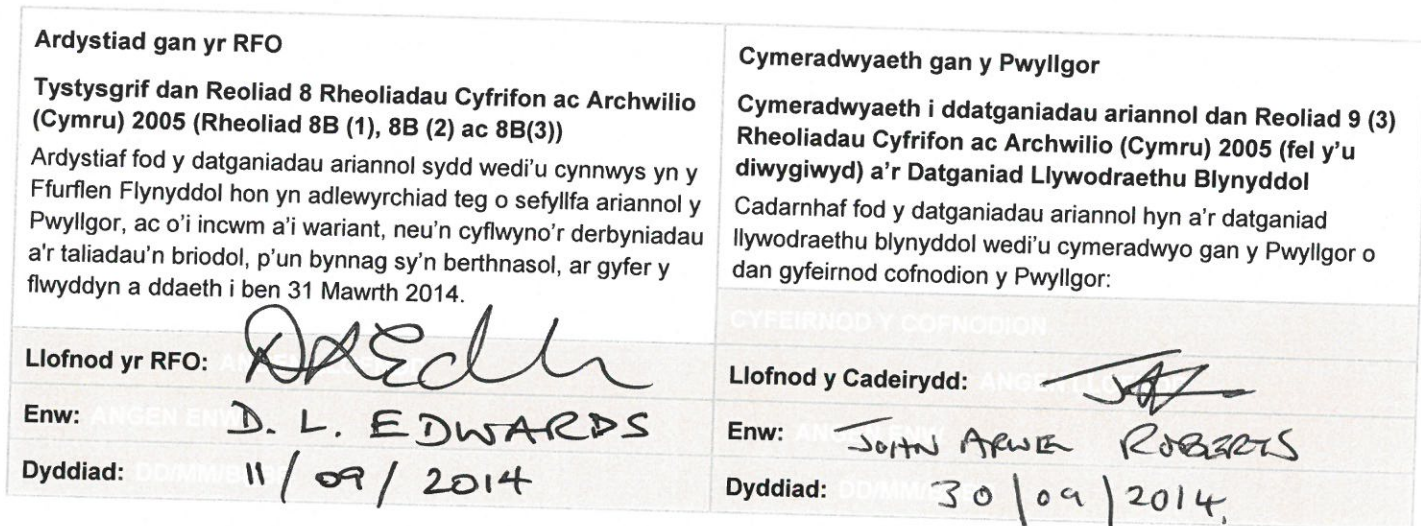 Ardystiad gan yr RFO
Tystysgrif dan Reoliad 8 Rheoliadau Cyfrifon ac Archwilio
(Cymru) 2005 (Rheoliad 8B (1), 8B (2) ac 8B(3))
Ardystiaf fod y datganiadau ariannol sydd wedi'u cynnwys yn y
Ffurflen Flynyddol hon yn adlewyrchiad teg o sefyllfa ariannol y
Pwyllgor, ac o'i incwm a'i wariant, neu'n cyflwyno'r derbyniadau
a'r taliadau'n briodol, p'un bynnag sy'n berthnasol, ar gyfer y
flwyddyn a ddaeth i ben 31 Mawrth 2014.
Llofnod yr RFO:
Enw: ANGEN ENW D. L. EDWARDS
Dyddiad: 11/09/2014
Cymeradwyaeth gan y Pwyllgor
Cymeradwyaeth i ddatganiadau ariannol dan Reoliad 9 (3)
Rheoliadau Cyfrifon ac Archwilio (Cymru) 2005 (fel y'u
diwygiwyd) a'r Datganiad Llywodraethu Blynyddol
Cadarnhaf fod y datganiadau ariannol hyn a'r datganiad
llywodraethu blynyddol wedi'u cymeradwyo gan y Pwyllgor o
dan gyfeirnod cofnodion y Pwyllgor:
CYFEIRNOD Y COFNODION
Llofnod y Cadeirydd:
Enw: JOHN ROBERTS
Dyddiad: 30/09/2014.